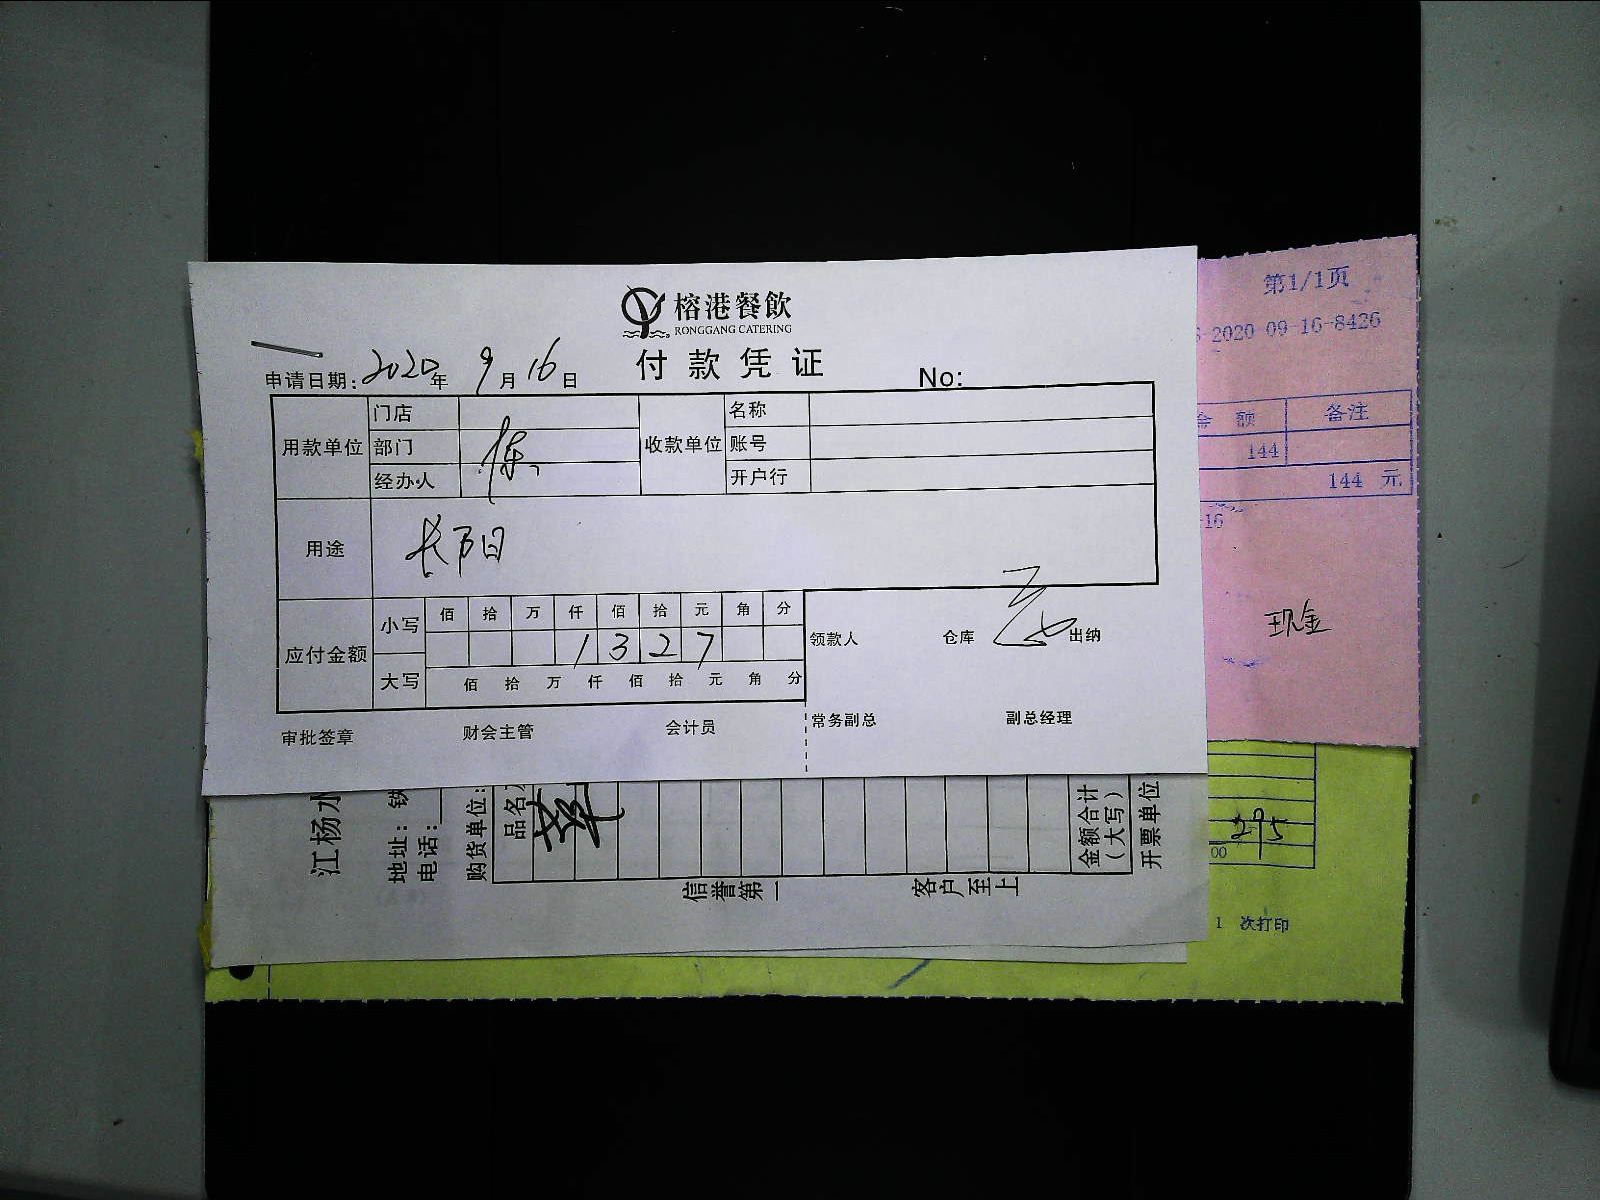 榕港餐飲
RONGGANG CATERING
付款凭证
申请日期: 2020年 9月16日 No:
用款单位 门店 收款单位 名称
部门 陈 账号
经办人 开户行
用途
应付金额 小写 佰 拾 万 仟 佰 拾 元 角 分
1 3 2 7
大写 佰 拾 万 仟 佰 拾 元 角 分
领款人 仓库 出纳
审批签章 财会主管 会计员 常务副总 副总经理
第1/1页
2020-09-16-8426
金额 备注
144
144 元
-16
现金
江杨水
地址: 铁
电话:
购货单位:
品名
金额合计
(大写)
开票单位:
信誉第一 客户至上
295
00
1 次打印